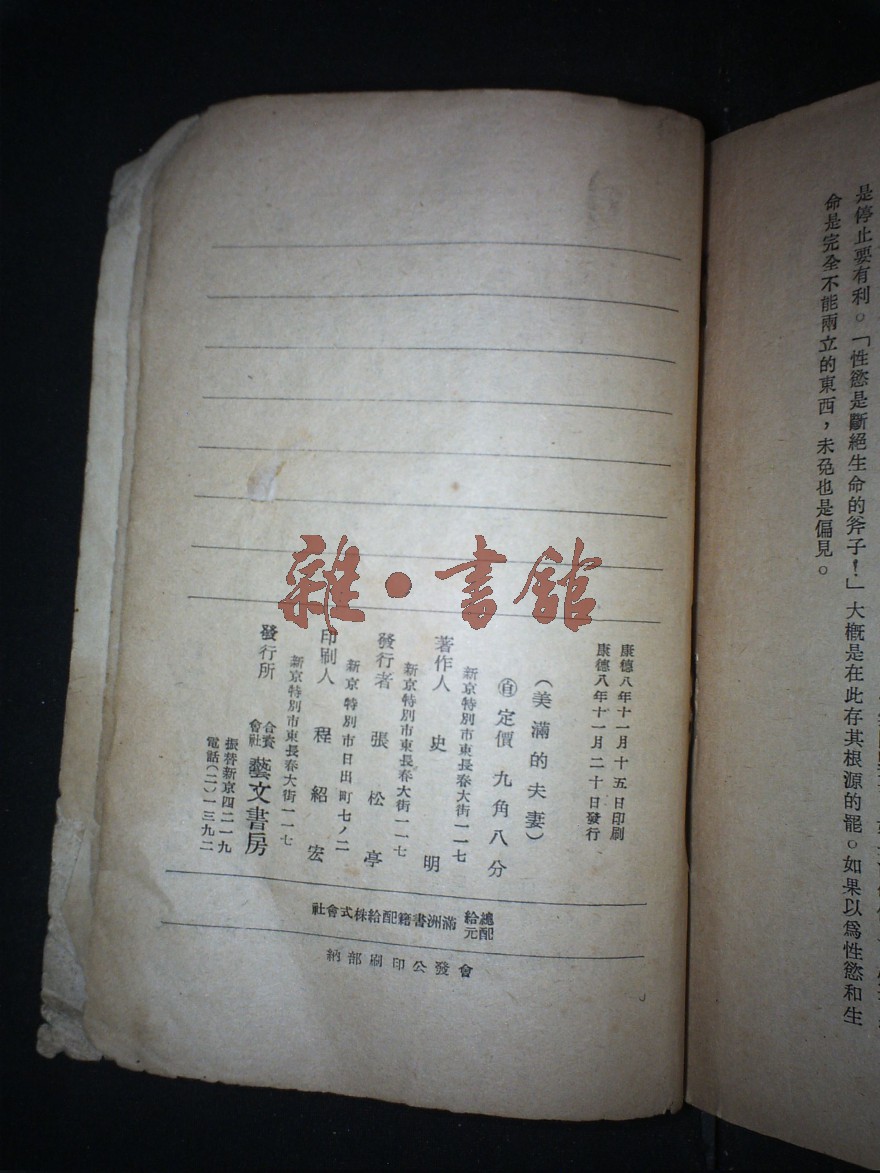 是停止要有利。「性慾是斷絕生命的斧子！」大概是在此存其根源的罷。如果以爲性慾和生
命是完全不能兩立的東西，未免也是偏見。
雜·書館
康德八年十一月十五日印刷
康德八年十一月二十日發行
（美滿的夫妻）
定價 九角八分
新京特別市東長春大街一一七
著作人 史 明
新京特別市東長春大街一一七
發行者 張松亭
新京特別市日出町七ノ二
印刷人 程紹宏
新京特別市東長春大街一一七
發行所 合資會社 藝文書房
振替新京四二一九
電話(二)一三九二
總配給元 滿洲書籍配給株式會社
會發公印刷部納